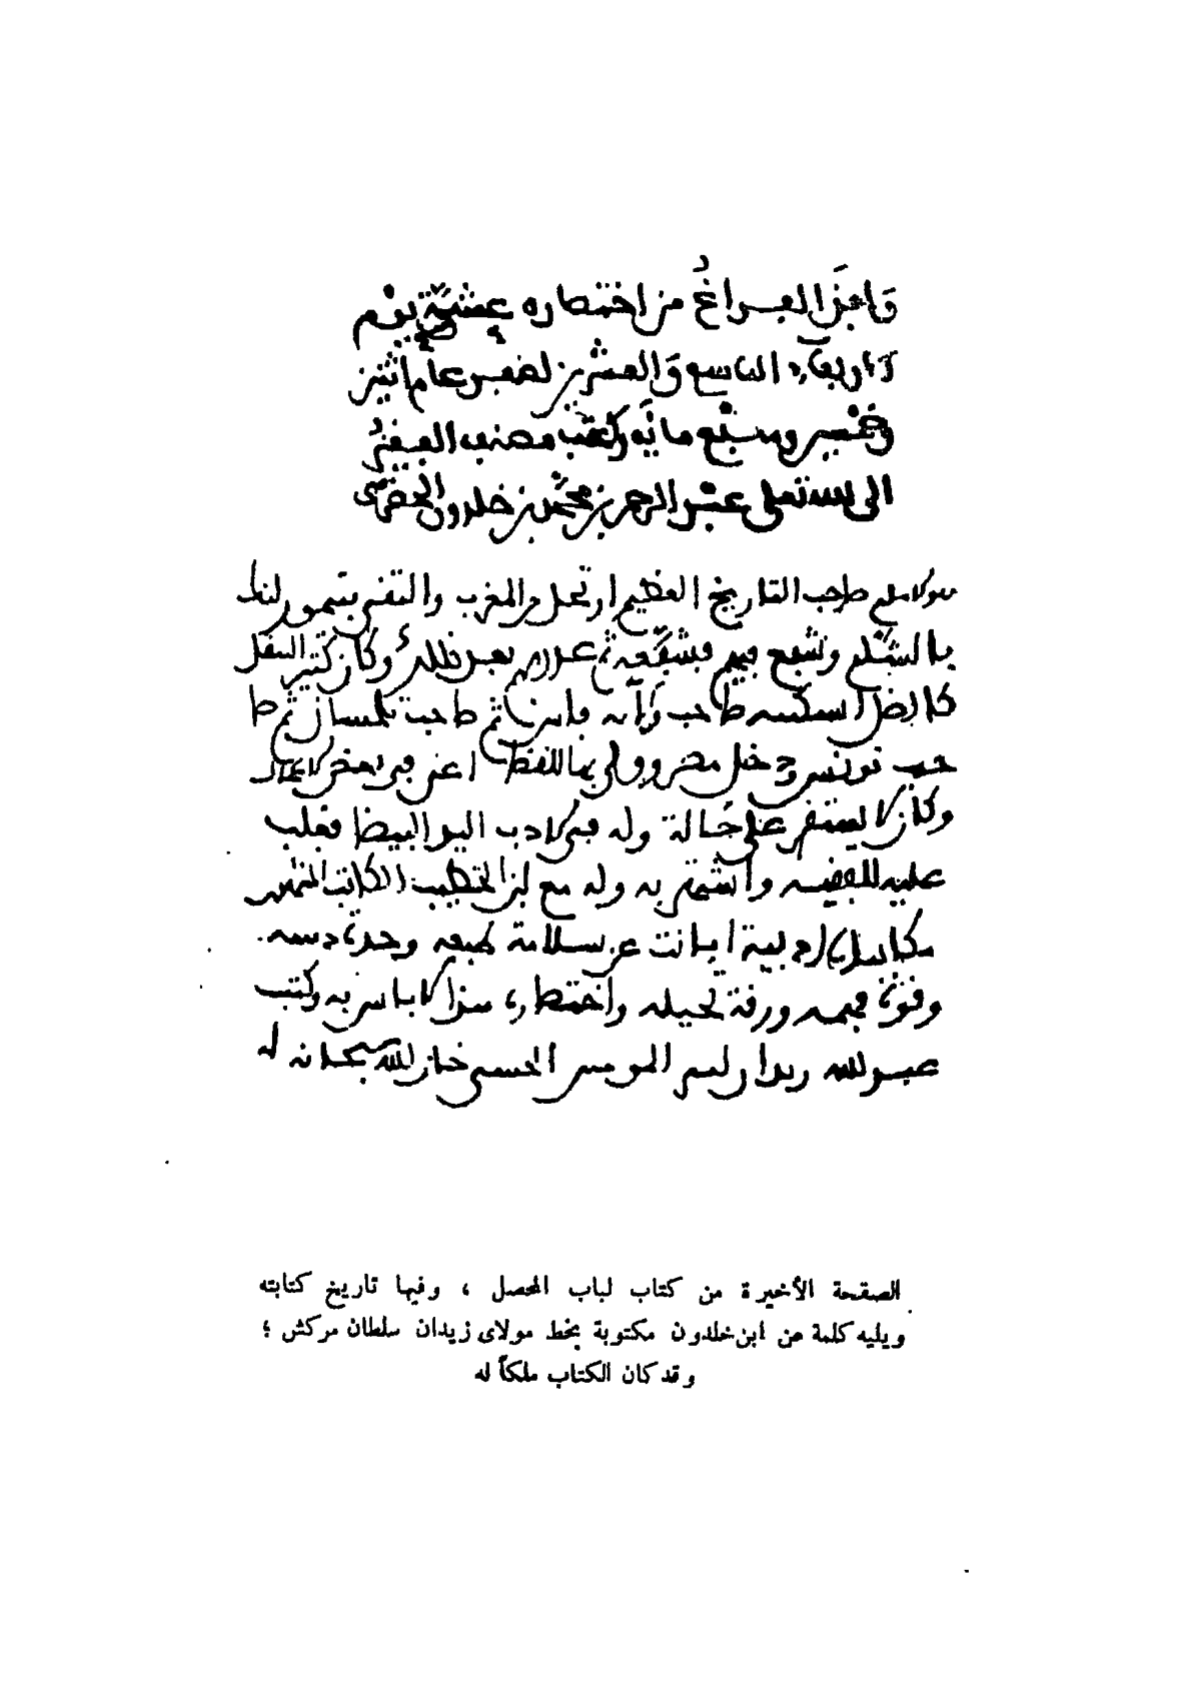 وَافَقَ الفراغُ من اختصاره عشيّة يوم
الاربعاء التاسع وَالعشرين لصفر عام اثنين
وخمسين وسبع مائة وكتب مصنفه الفقيرُ
الى الله تعلى عبد الرحمن بن محمد بن خلدون الحضرمى
هو الامام صاحب التاريخ العظيم ارتحل من المغرب والتقى بتيمور لنك
بالشام وشفع فيهم فشفعه ثم غدرهم بعد ذلك وكان كثير التنقل
صاحب فاس ثم صاحب تلمسان ثم صا
حب تونس ودخل مصر وولى بها القضا اعنى فى بعض
وكان لا يستقر على حالة وله فى الادب اليد البيضا فغلب
عليه واشتهر به وله مع ابن الخطيب الكاتب
ادبية ابانت عن سلامة طبعه وحدة
وقوة فهمه ورقة تخيله واختصاره هذا لا باس به وكتب
عبد الله زيدان امير المومنين الحسنى خار الله سبحانه له
الصفحة الأخيرة من كتاب لباب المحصل ، وفيها تاريخ كتابته
ويليه كلمة عن ابن خلدون مكتوبة بخط مولاى زيدان سلطان مركش ؛
وقد كان الكتاب ملكاً له